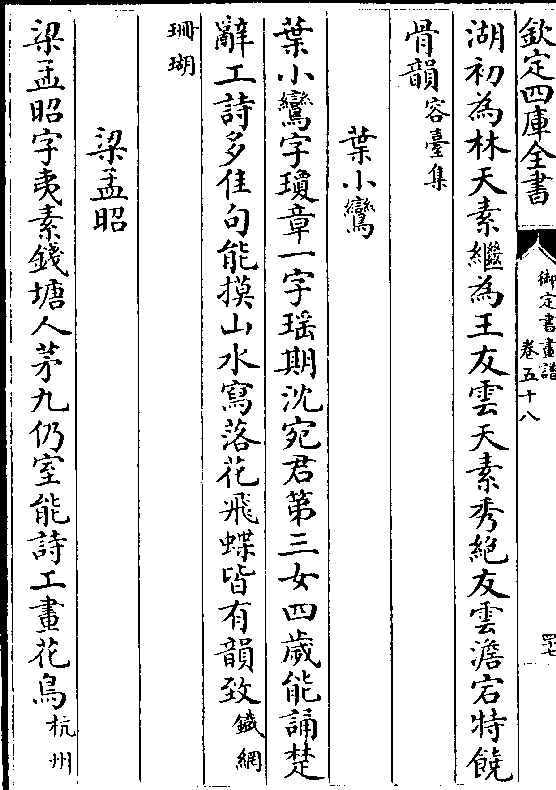 欽定四庫全書
御定書畫譜
卷五十八
四七
湖初為林天素繼為王友雲天素秀絶友雲澹宕特饒
骨韻容臺集
葉小鸞
葉小鸞字瓊章一字瑶期沈宛君第三女四歲能誦楚
辭工詩多佳句能摸山水寫落花飛蝶皆有韻致鐵網
珊瑚
梁孟昭
梁孟昭字夷素錢塘人茅九仍室能詩工畫花鳥杭州